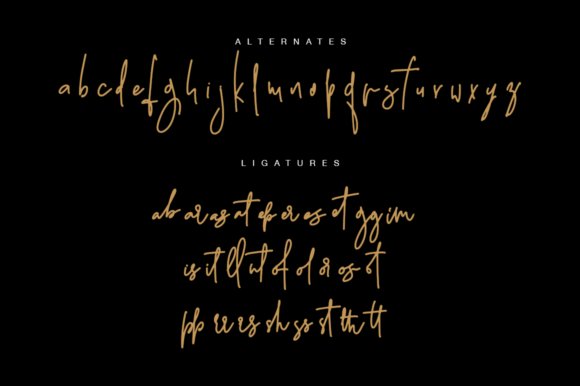 ALTERNATES
a b c d e f g h i j k l m n o p q r s t u v w x y z
LIGATURES
ab ar as at ep er es et gg im
is it ll nt of ol or os ot
pp rr rs sh ss st th tt